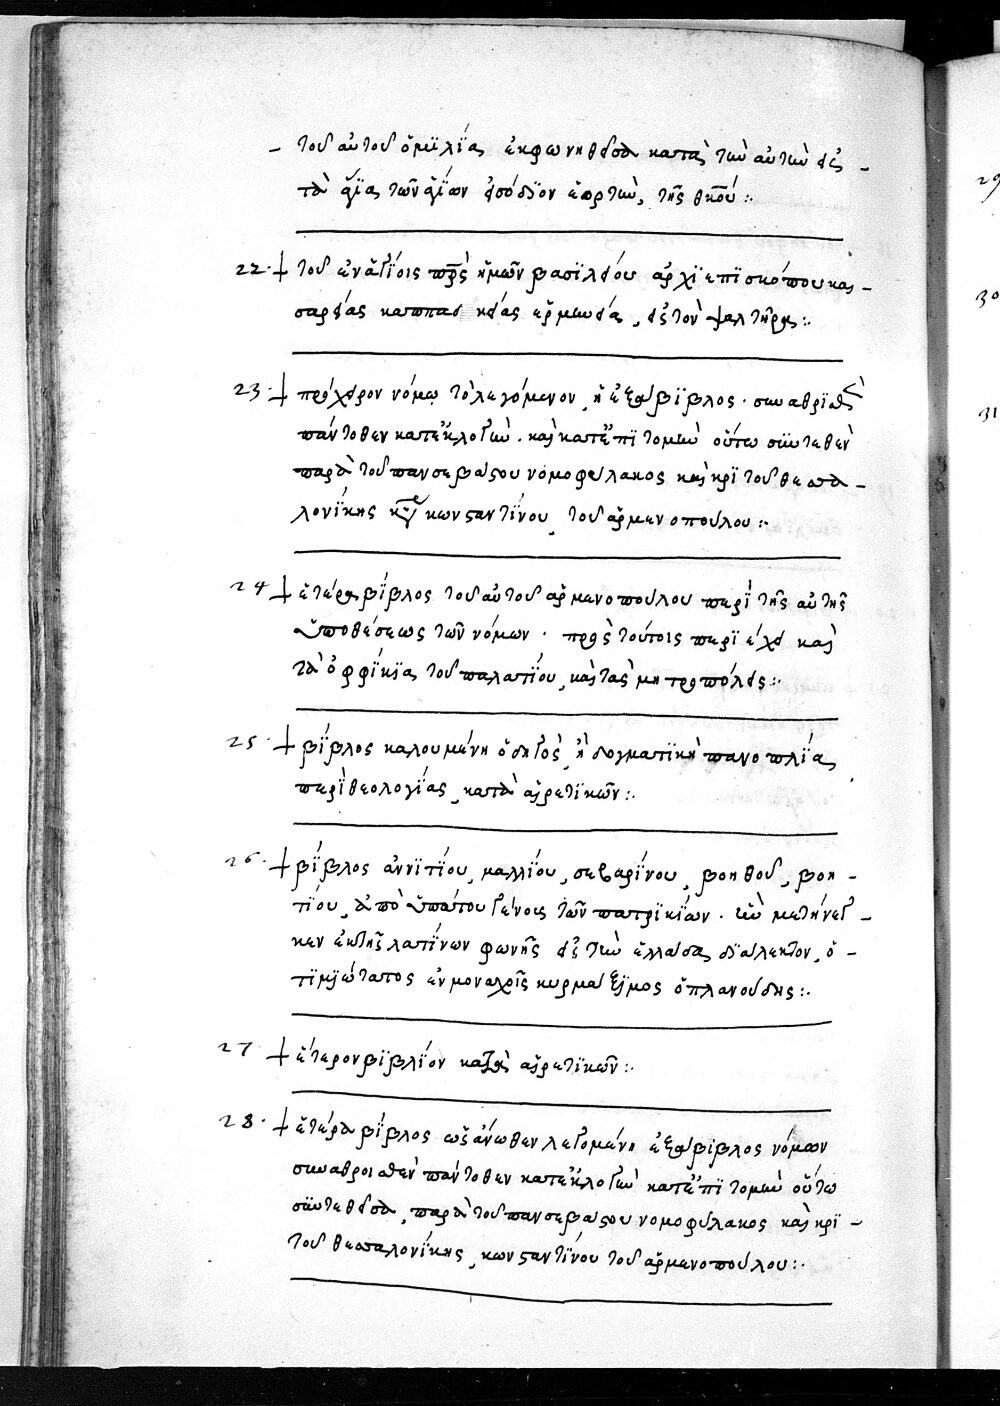 - τοῦ αὐτοῦ ὁμιλία, ἐκφωνηθεῖσα κατὰ τὴν αὐτὴν εἰς -
τὰ ἅγια τῶν ἁγίων εἰσόδιον ἑορτὴν, τῆς θκου :.
22. + τοῦ ἐν ἁγίοις πρς ἡμῶν βασιλείου ἀρχιεπισκόπου και -
σαρείας καππαδοκείας ἑρμηνεία, εἰς τὸν ψαλτῆρα :.
23. + πρόχειρον νόμω τὸ λεγόμενον, ἡ ἑξάβιβλος. συναθροισθὲν
πάντοθεν κατ' ἐκλογὴν. καὶ κατ' ἐπιτομὴν οὕτω συντεθὲν
παρὰ τοῦ πανσεβάστου νομοφύλακος καὶ κριτοῦ θεσσα -
λονίκης κυ κωνσταντίνου, τοῦ ἁρμενοπούλου :.
24 + ἑτέρα βίβλος τοῦ αὐτοῦ ἁρμενοπούλου περὶ τῆς αὐτῆς
ὑποθέσεως τῶν νόμων. πρὸς τούτοις περιέχει καὶ
τὰ ὀφφίκια τοῦ παλατίου, καὶ τὰς μητροπόλεις :.
25. + βίβλος καλουμένη ὁδηγὸς, ἢ δογματικὴ πανοπλία,
περὶ θεολογίας, κατὰ αἱρετικῶν :.
26. + βίβλος ἀννιτίου, μαλλίου, σεβαρίνου, βοηθοῦ, βοη -
τίου, ἀπὸ ὑπάτου γένοις τῶν πατρικίων. ἣν μετήνεγ -
κεν ἐκ τῆς λατίνων φωνῆς εἰς τὴν ἑλλάδα διάλεκτον, ὁ -
τιμιώτατος ἐν μοναχοῖς κυρ μάξιμος ὁ πλανούδης :.
27 + ἕτερον βιβλίον κατὰ αἱρετικῶν :.
28. + ἑτέρα βίβλος ὡς ἄνωθεν λεγομένη ἑξάβιβλος νόμων
συναθροισθὲν πάντοθεν κατ' ἐκλογὴν κατ' ἐπιτομὴν οὕτω
συντεθεῖσα, παρὰ τοῦ πανσεβάστου νομοφύλακος καὶ κρι -
τοῦ θεσσαλονίκης, κωνσταντίνου τοῦ ἁρμενοπούλου :.
29
30
31